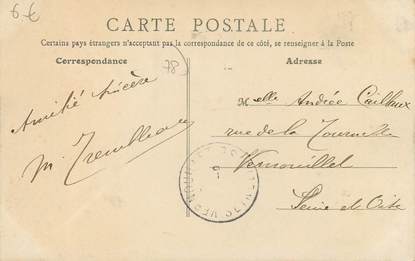 6 €
CARTE POSTALE
Certains pays étrangers n'acceptant pas la correspondance de ce côté, se renseigner à la Poste
Correspondance
78
Adresse
Amitié sincère
M. Trembleau
Melle Andrée Cailloux
rue de la Tournelle
Vernouillet
Seine et Oise
VERNOUILLET